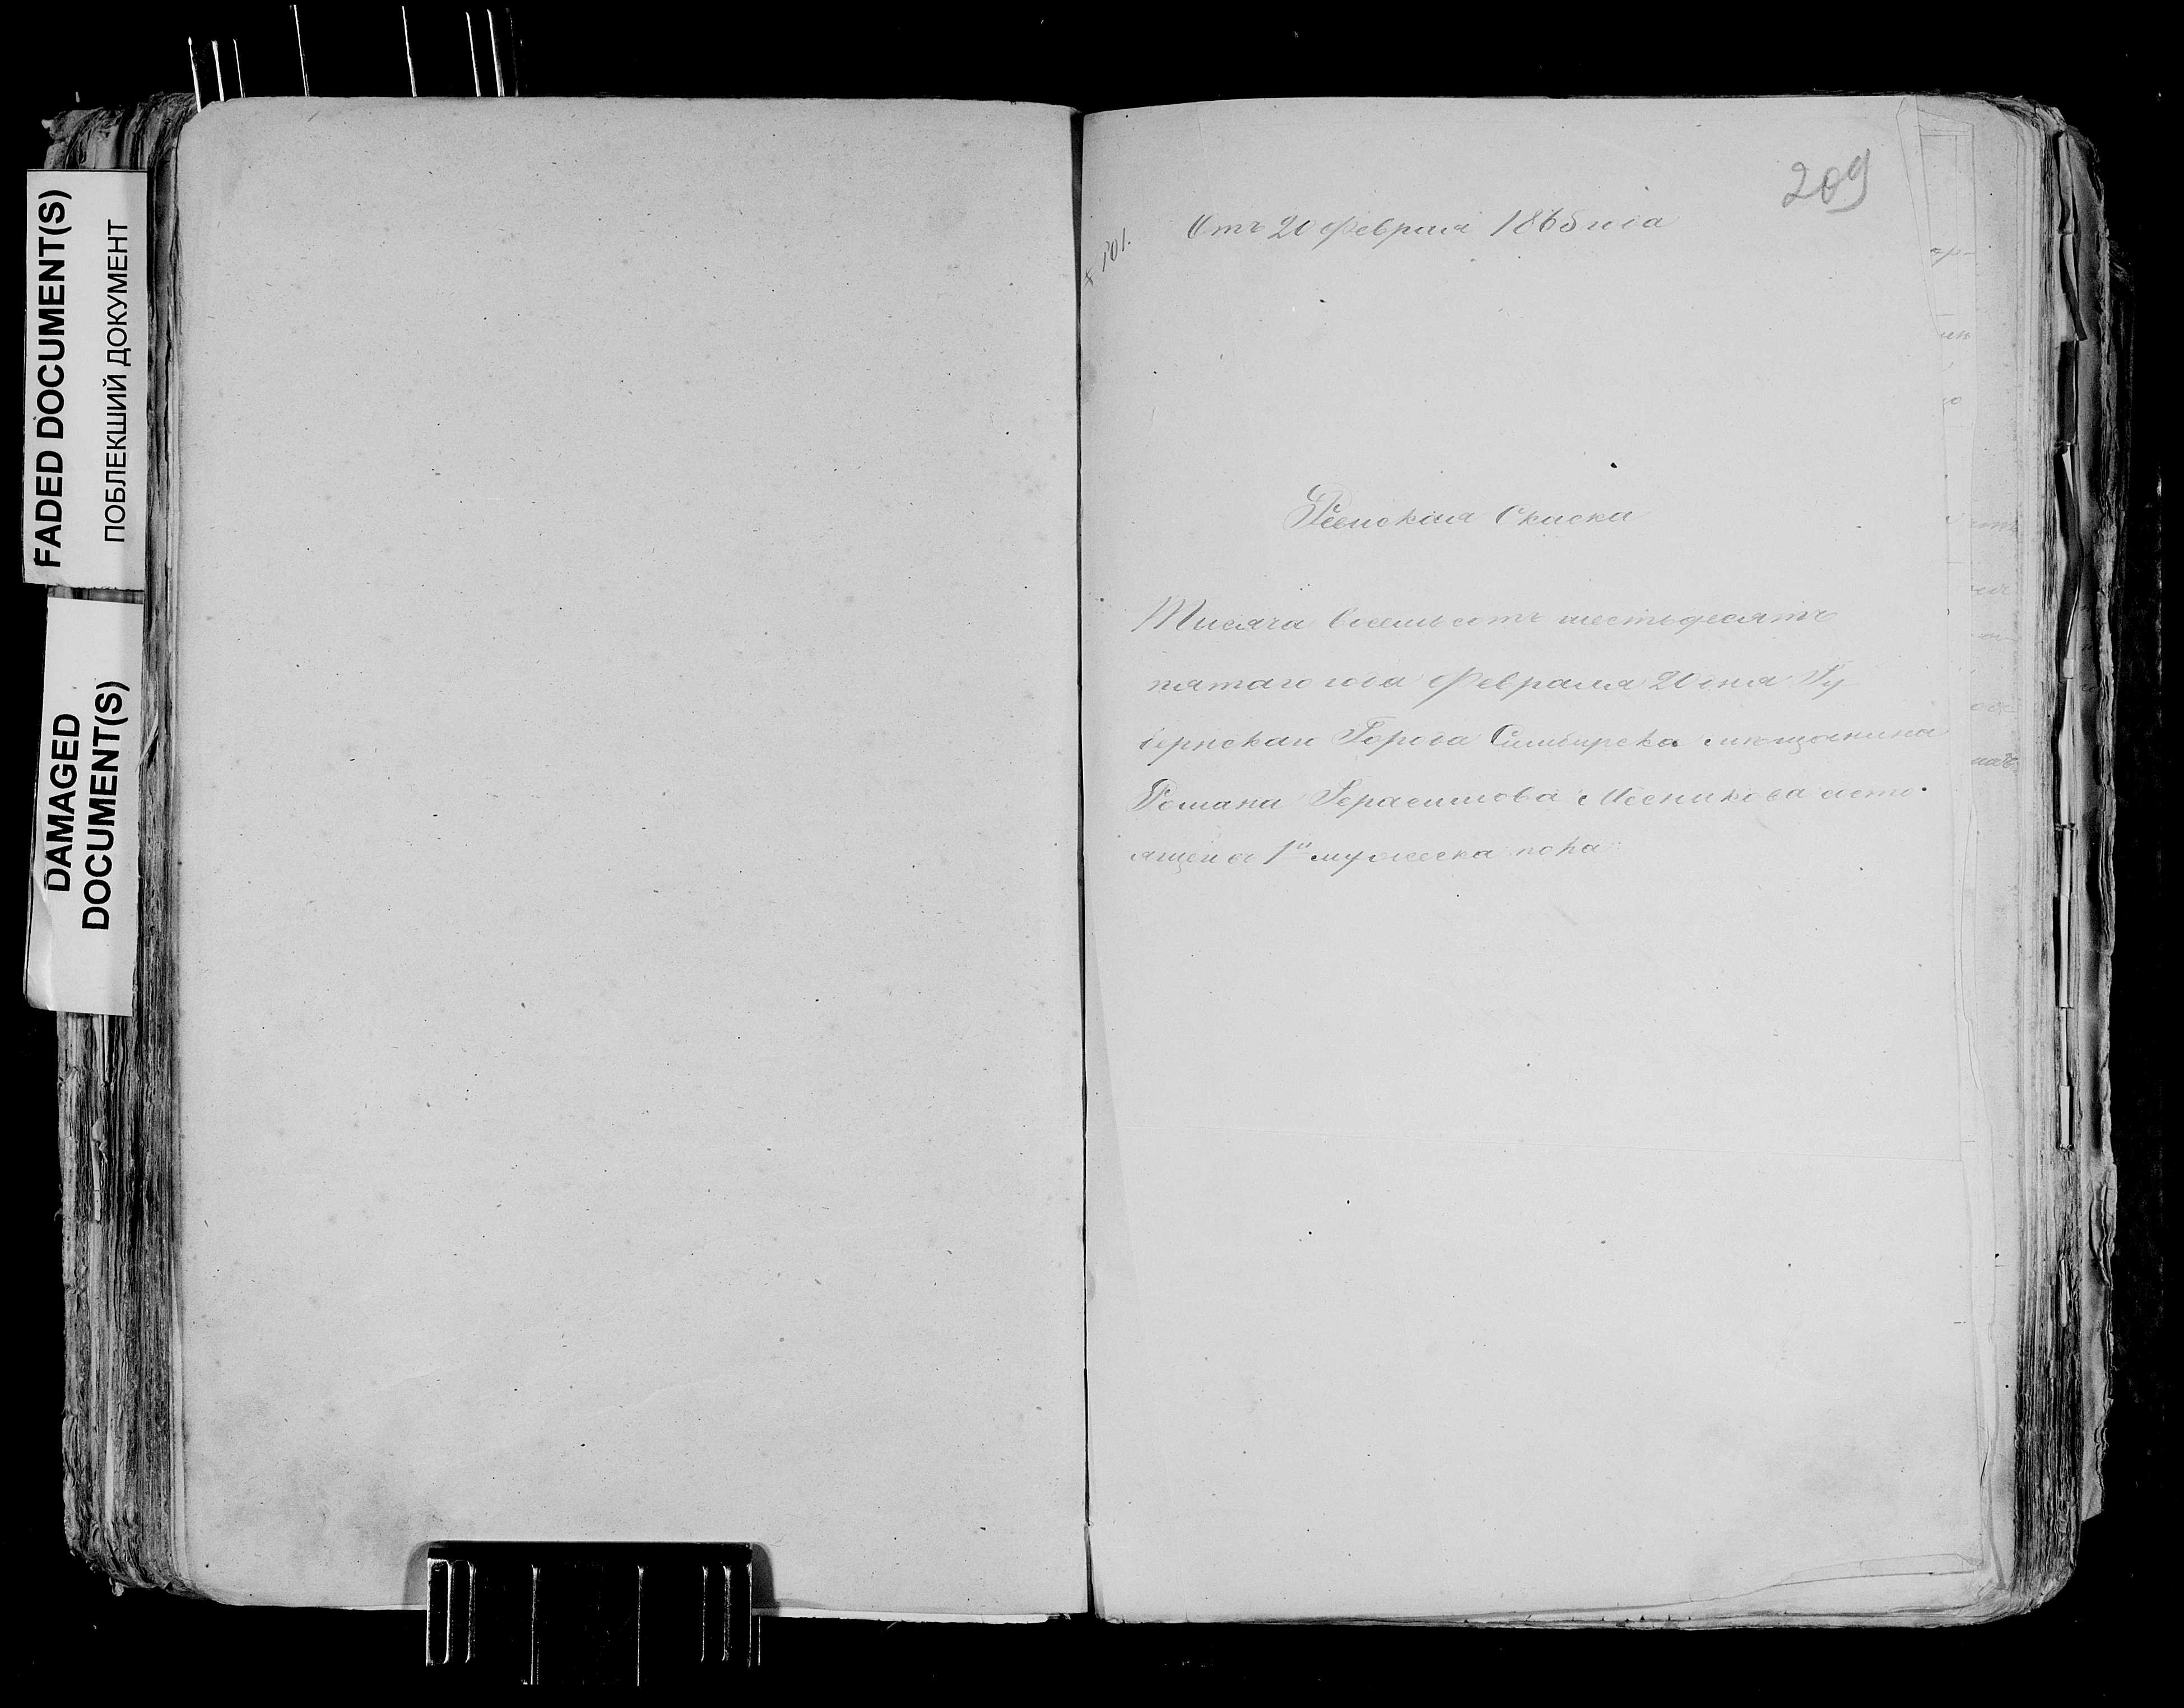 FADED DOCUMENT(S)
ПОБЛЕКШИЙ ДОКУМЕНТ
DAMAGED
DOCUMENT(S)
209
101.
Отъ 20 Февраля 1865 года
Ревиская Скаска
Тисяча Восемьсотъ шестьдесятъ
пятаго года Февраля 20 дня Гу
бернскаго Города Симбирска мещанина
Романа Герасимова Месникова состо
ящей о 1й мужеска пола